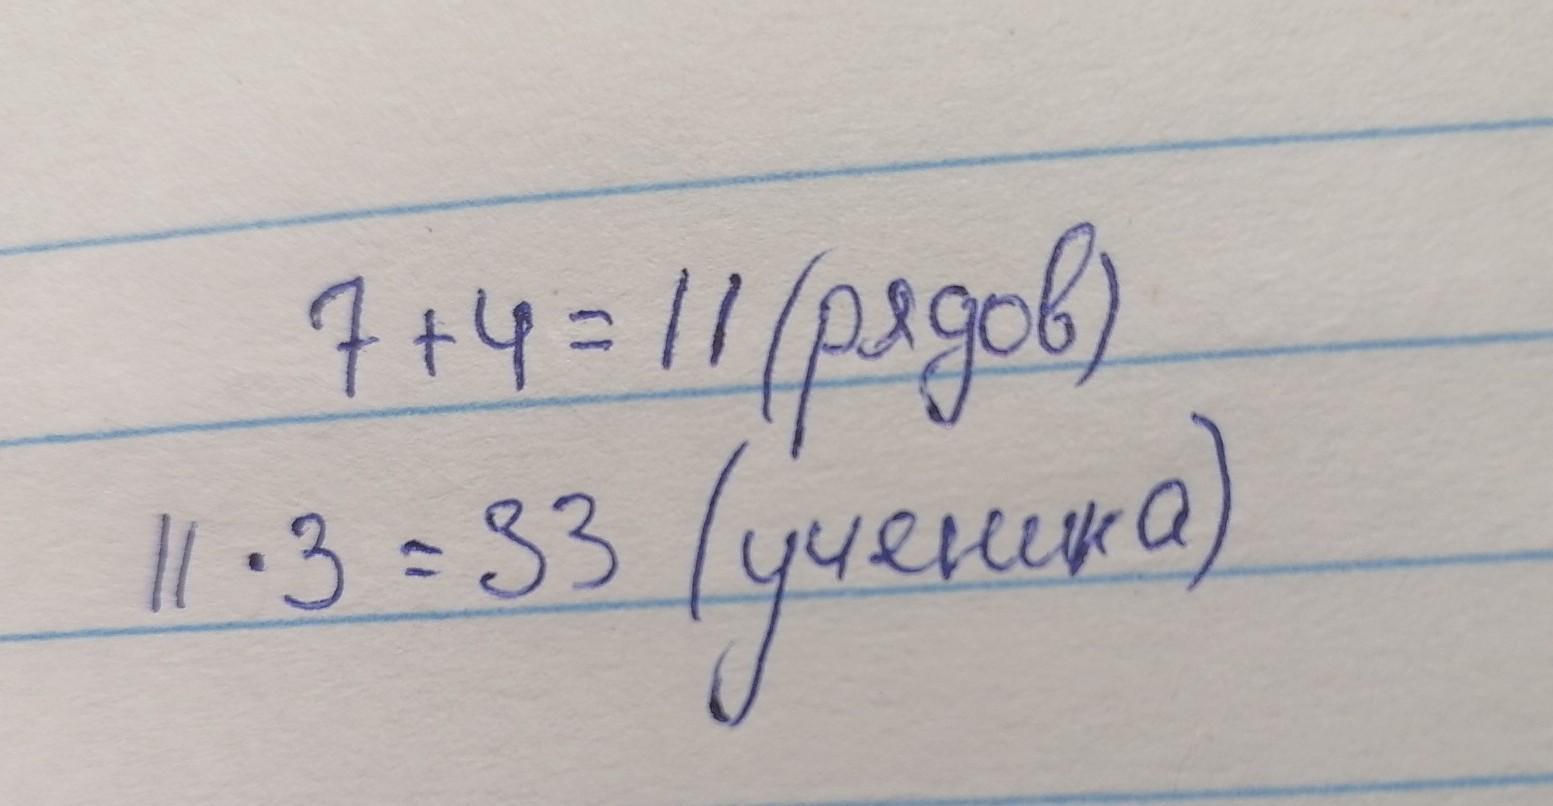 7 + 4 = 11 (рядов)
11 · 3 = 33 (ученика)